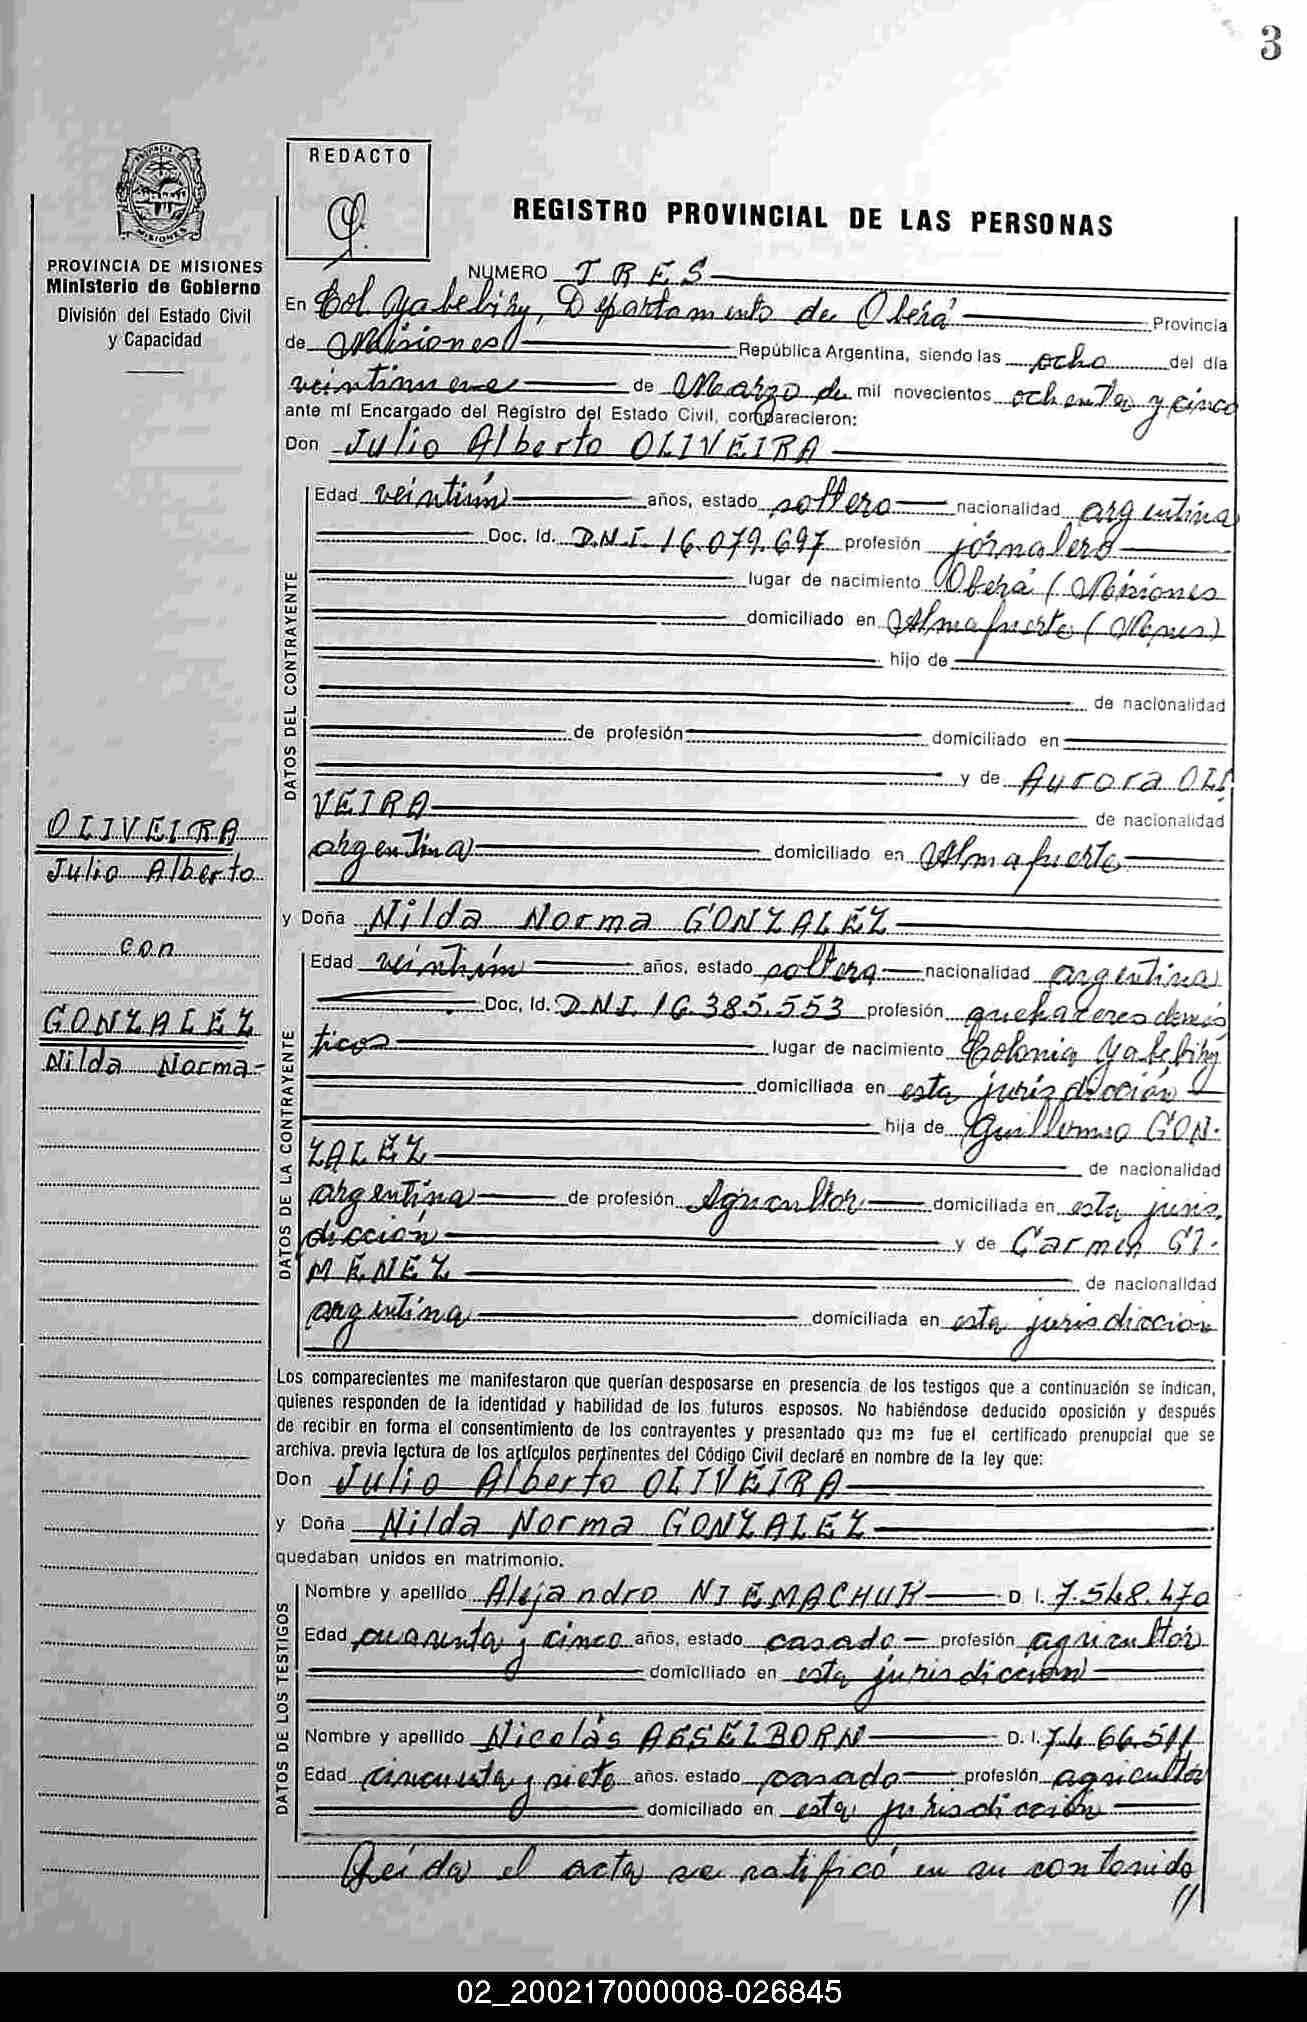 3
REDACTO
REGISTRO PROVINCIAL DE LAS PERSONAS
PROVINCIA DE MISIONES
Ministerio de Gobierno
División del Estado Civil
y Capacidad
NUMERO TRES
En Col. Yabebiry, Departamento de Oberá Provincia
de Misiones República Argentina, siendo las ocho del día
veintinueve de Marzo de mil novecientos ochenta y cinco
ante mí Encargado del Registro del Estado Civil, comparecieron:
Don Julio Alberto OLIVEIRA
DATOS DEL CONTRAYENTE
Edad veintiún años, estado soltero nacionalidad argentina
Doc. Id. D.N.I. 16.079.697 profesión jornalero
lugar de nacimiento Oberá (Misiones
domiciliado en Almafuerte (Mnes)
hijo de
de nacionalidad
de profesión domiciliado en
y de Aurora OLI
VEIRA de nacionalidad
argentina domiciliado en Almafuerte
OLIVEIRA
Julio Alberto
con
GONZALEZ
Nilda Norma-
y Doña Nilda Norma GONZALEZ
DATOS DE LA CONTRAYENTE
Edad veintiún años, estado soltera nacionalidad argentina
Doc. Id. D.N.I. 16.385.553 profesión quehaceres domés
ticos lugar de nacimiento Colonia Yabebiry
domiciliada en esta jurisdicción
hija de Guillermo GON-
ZALEZ de nacionalidad
argentina de profesión Agricultor domiciliada en esta juris
dicción y de Carmen GI-
MENEZ de nacionalidad
argentina domiciliada en esta jurisdicción
Los comparecientes me manifestaron que querían desposarse en presencia de los testigos que a continuación se indican,
quienes responden de la identidad y habilidad de los futuros esposos. No habiéndose deducido oposición y después
de recibir en forma el consentimiento de los contrayentes y presentado que me fue el certificado prenupcial que se
archiva. previa lectura de los artículos pertinentes del Código Civil declaré en nombre de la ley que:
Don Julio Alberto OLIVEIRA
y Doña Nilda Norma GONZALEZ
quedaban unidos en matrimonio.
DATOS DE LOS TESTIGOS
Nombre y apellido Alejandro NIEMACHUK D I. 7.548.470
Edad cuarenta y cinco años, estado casado profesión agricultor
domiciliado en esta jurisdicción
Nombre y apellido Nicolás ASSELBORN D. I. 7.466.511
Edad cincuenta y siete años. estado casado profesión agricultor
domiciliado en esta jurisdicción
Leída el acta se ratificó en su contenido
//
02_200217000008-026845